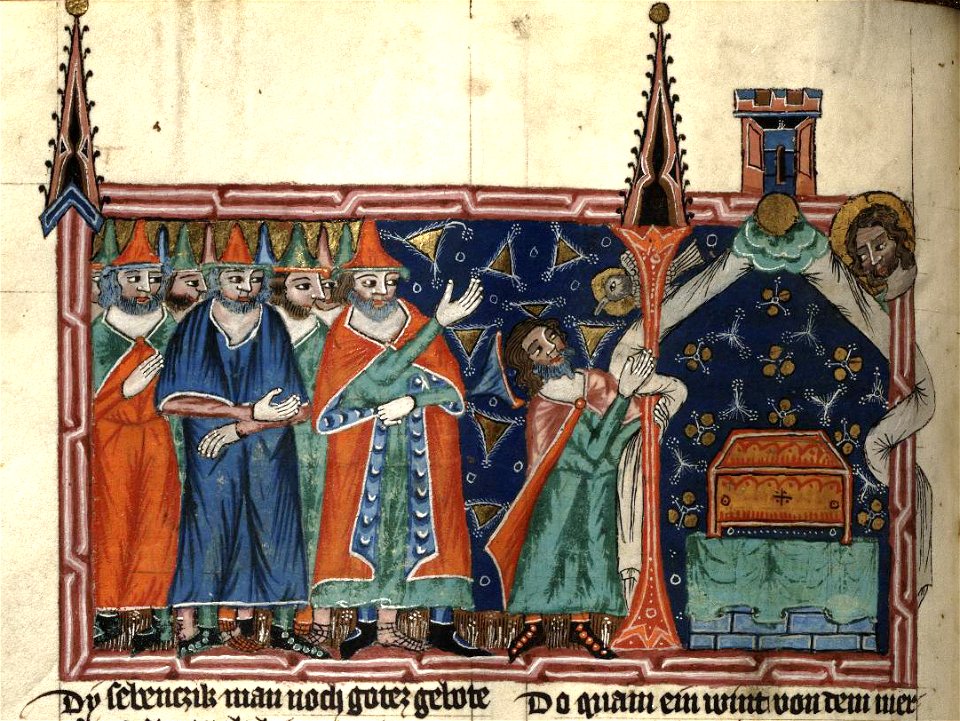 Dy sebenczik man noch gotez gebote
Do quam ein wint von dem mer